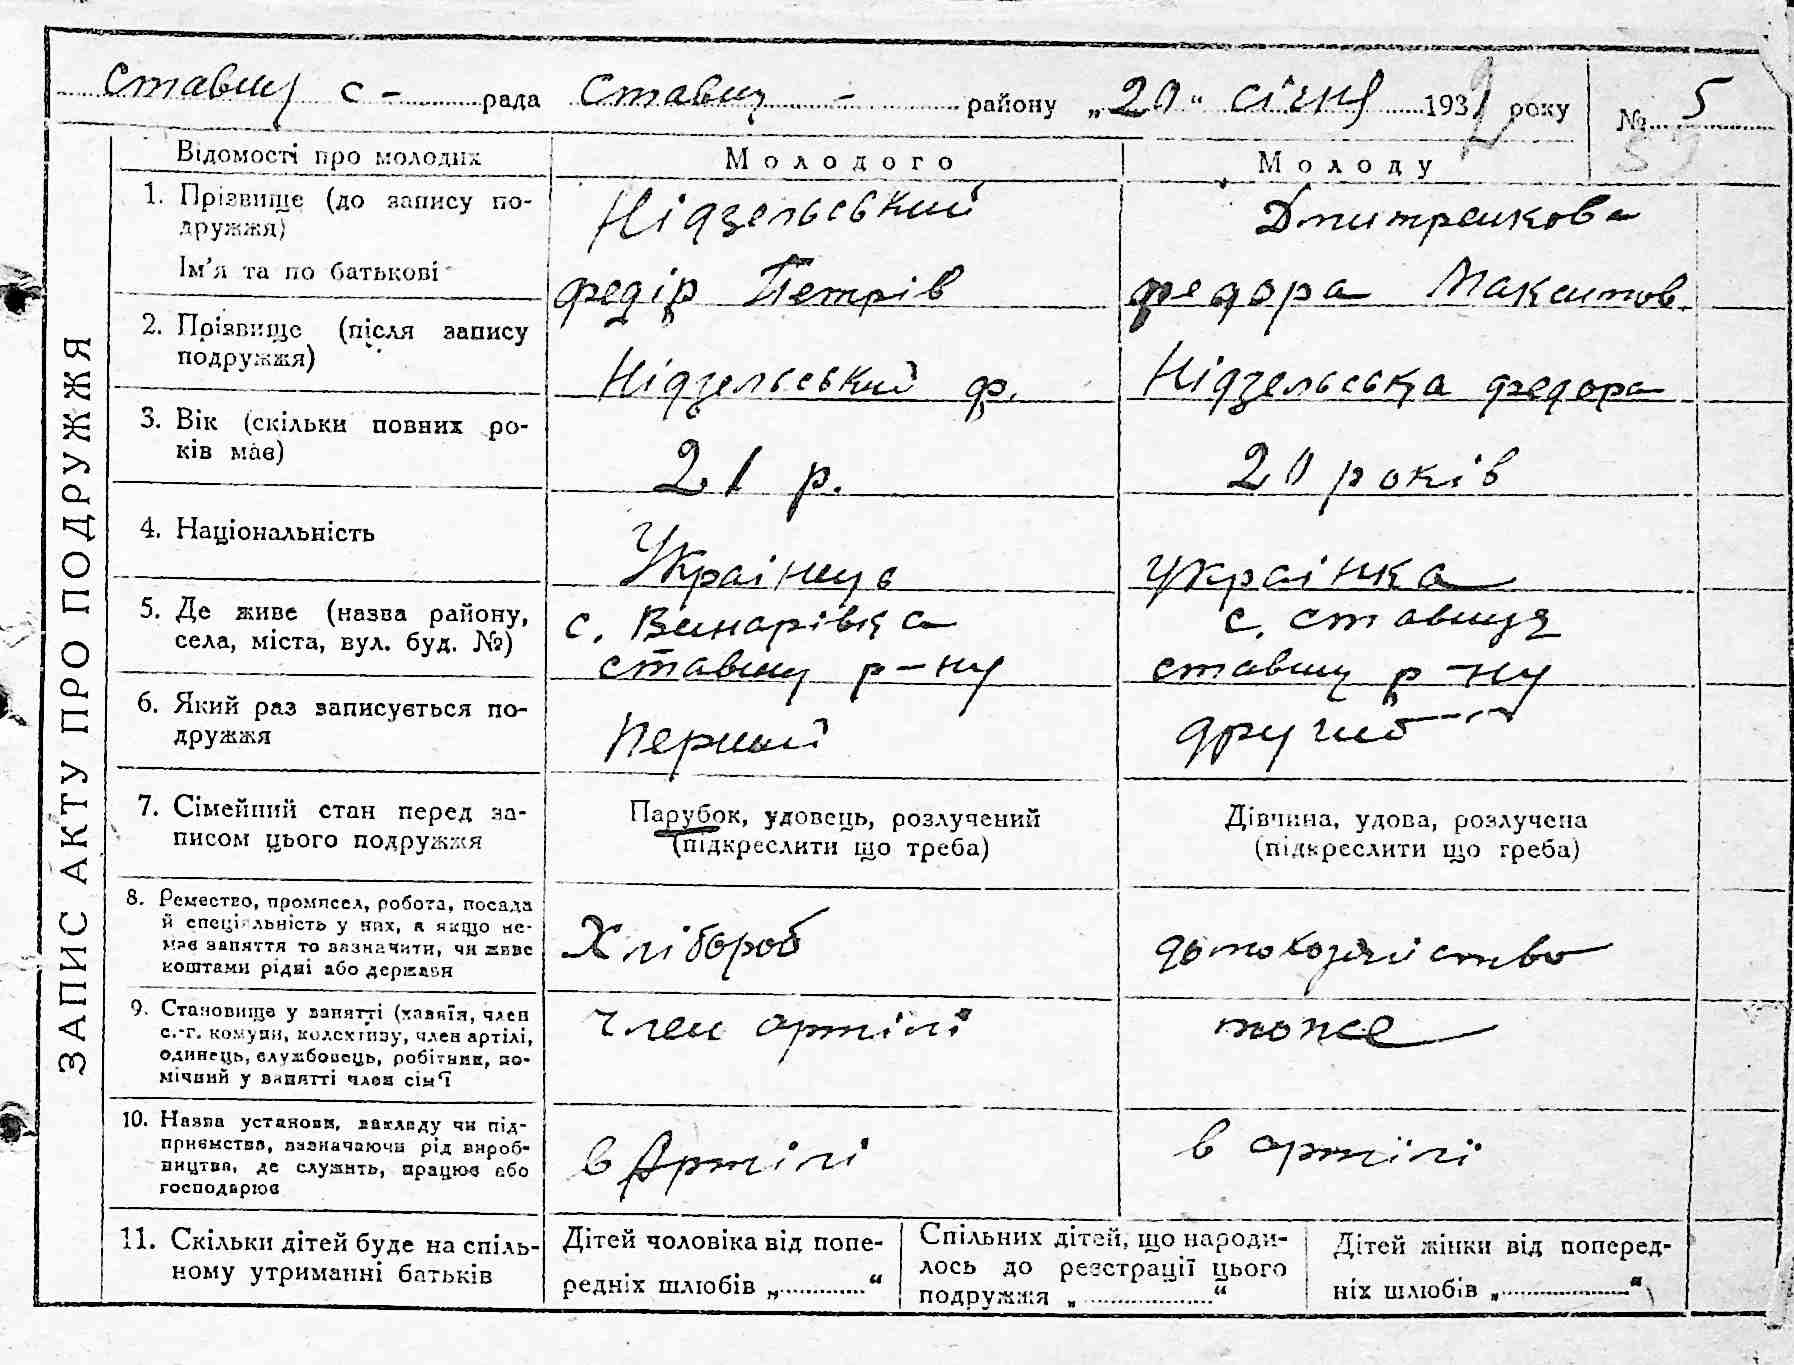 Ставищ с - рада Ставищ - району „20“ січня 1932 року № 5
ЗАПИС АКТУ ПРО ПОДРУЖЖЯ
Відомості про молодих Молодого Молоду
1. Прізвище (до запису по-
дружжя)
Нідзельський Дмитренкова
Ім'я та по батькові
Федір Петрів Федора Максимов.
2. Прізвище (після запису
подружжя)
Нідзельський Ф. Нідзельська Федора
3. Вік (скільки повних ро-
ків має)
21 р. 20 років
4. Національність
Українець Українка
5. Де живе (назва району,
села, міста, вул. буд. №)
с. Винарівка с. Ставища
Ставищ р-ну Ставищ р-ну
6. Який раз записується по-
дружжя
Перший другий
7. Сімейний стан перед за-
писом цього подружжя
Парубок, удовець, розлучений Дівчина, удова, розлучена
(підкреслити що треба) (підкреслити що треба)
8. Ремество, промисел, робота, посада
й спеціяльність у них, а якщо не-
має заняття то зазначити, чи живе
коштами рідні або держави
Хлібороб домохозяйство
9. Становище у занятті (хазяїн, член
с.-г. комуни, колективу, член артілі,
одинець, службовець, робітник, по-
мічний у занятті член сім'ї
Член артілі тоже
10. Назва установи, закладу чи під-
приємства, зазначаючи рід вироб-
ництва, де служить, працює або
господарює
в Артілі в артілі
11. Скільки дітей буде на спіль-
ному утриманні батьків
Дітей чоловіка від попе-
редніх шлюбів „ “
Спільних дітей, що народи-
лось до реєстрації цього
подружжя „ “
Дітей жінки від поперед-
ніх шлюбів „ “